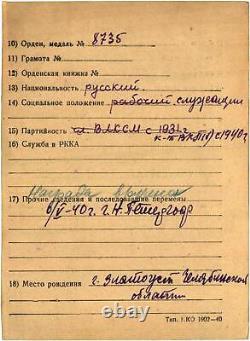 10) Орден, медаль № 8735
11) Грамота №
12) Орденская книжка №
13) Национальность русский
14) Социальное положение рабочий служащий
15) Партийность чл. ВЛКСМ с 1931 г.
1940 г.
16) Служба в РККА
Награда вручена
17) Прочие сведения и последование перемены
6/V-40 г. г. Н. Петергоф
18) Место рождения г. Златоуст Челябинской
области
Тип. НКО 1902—40